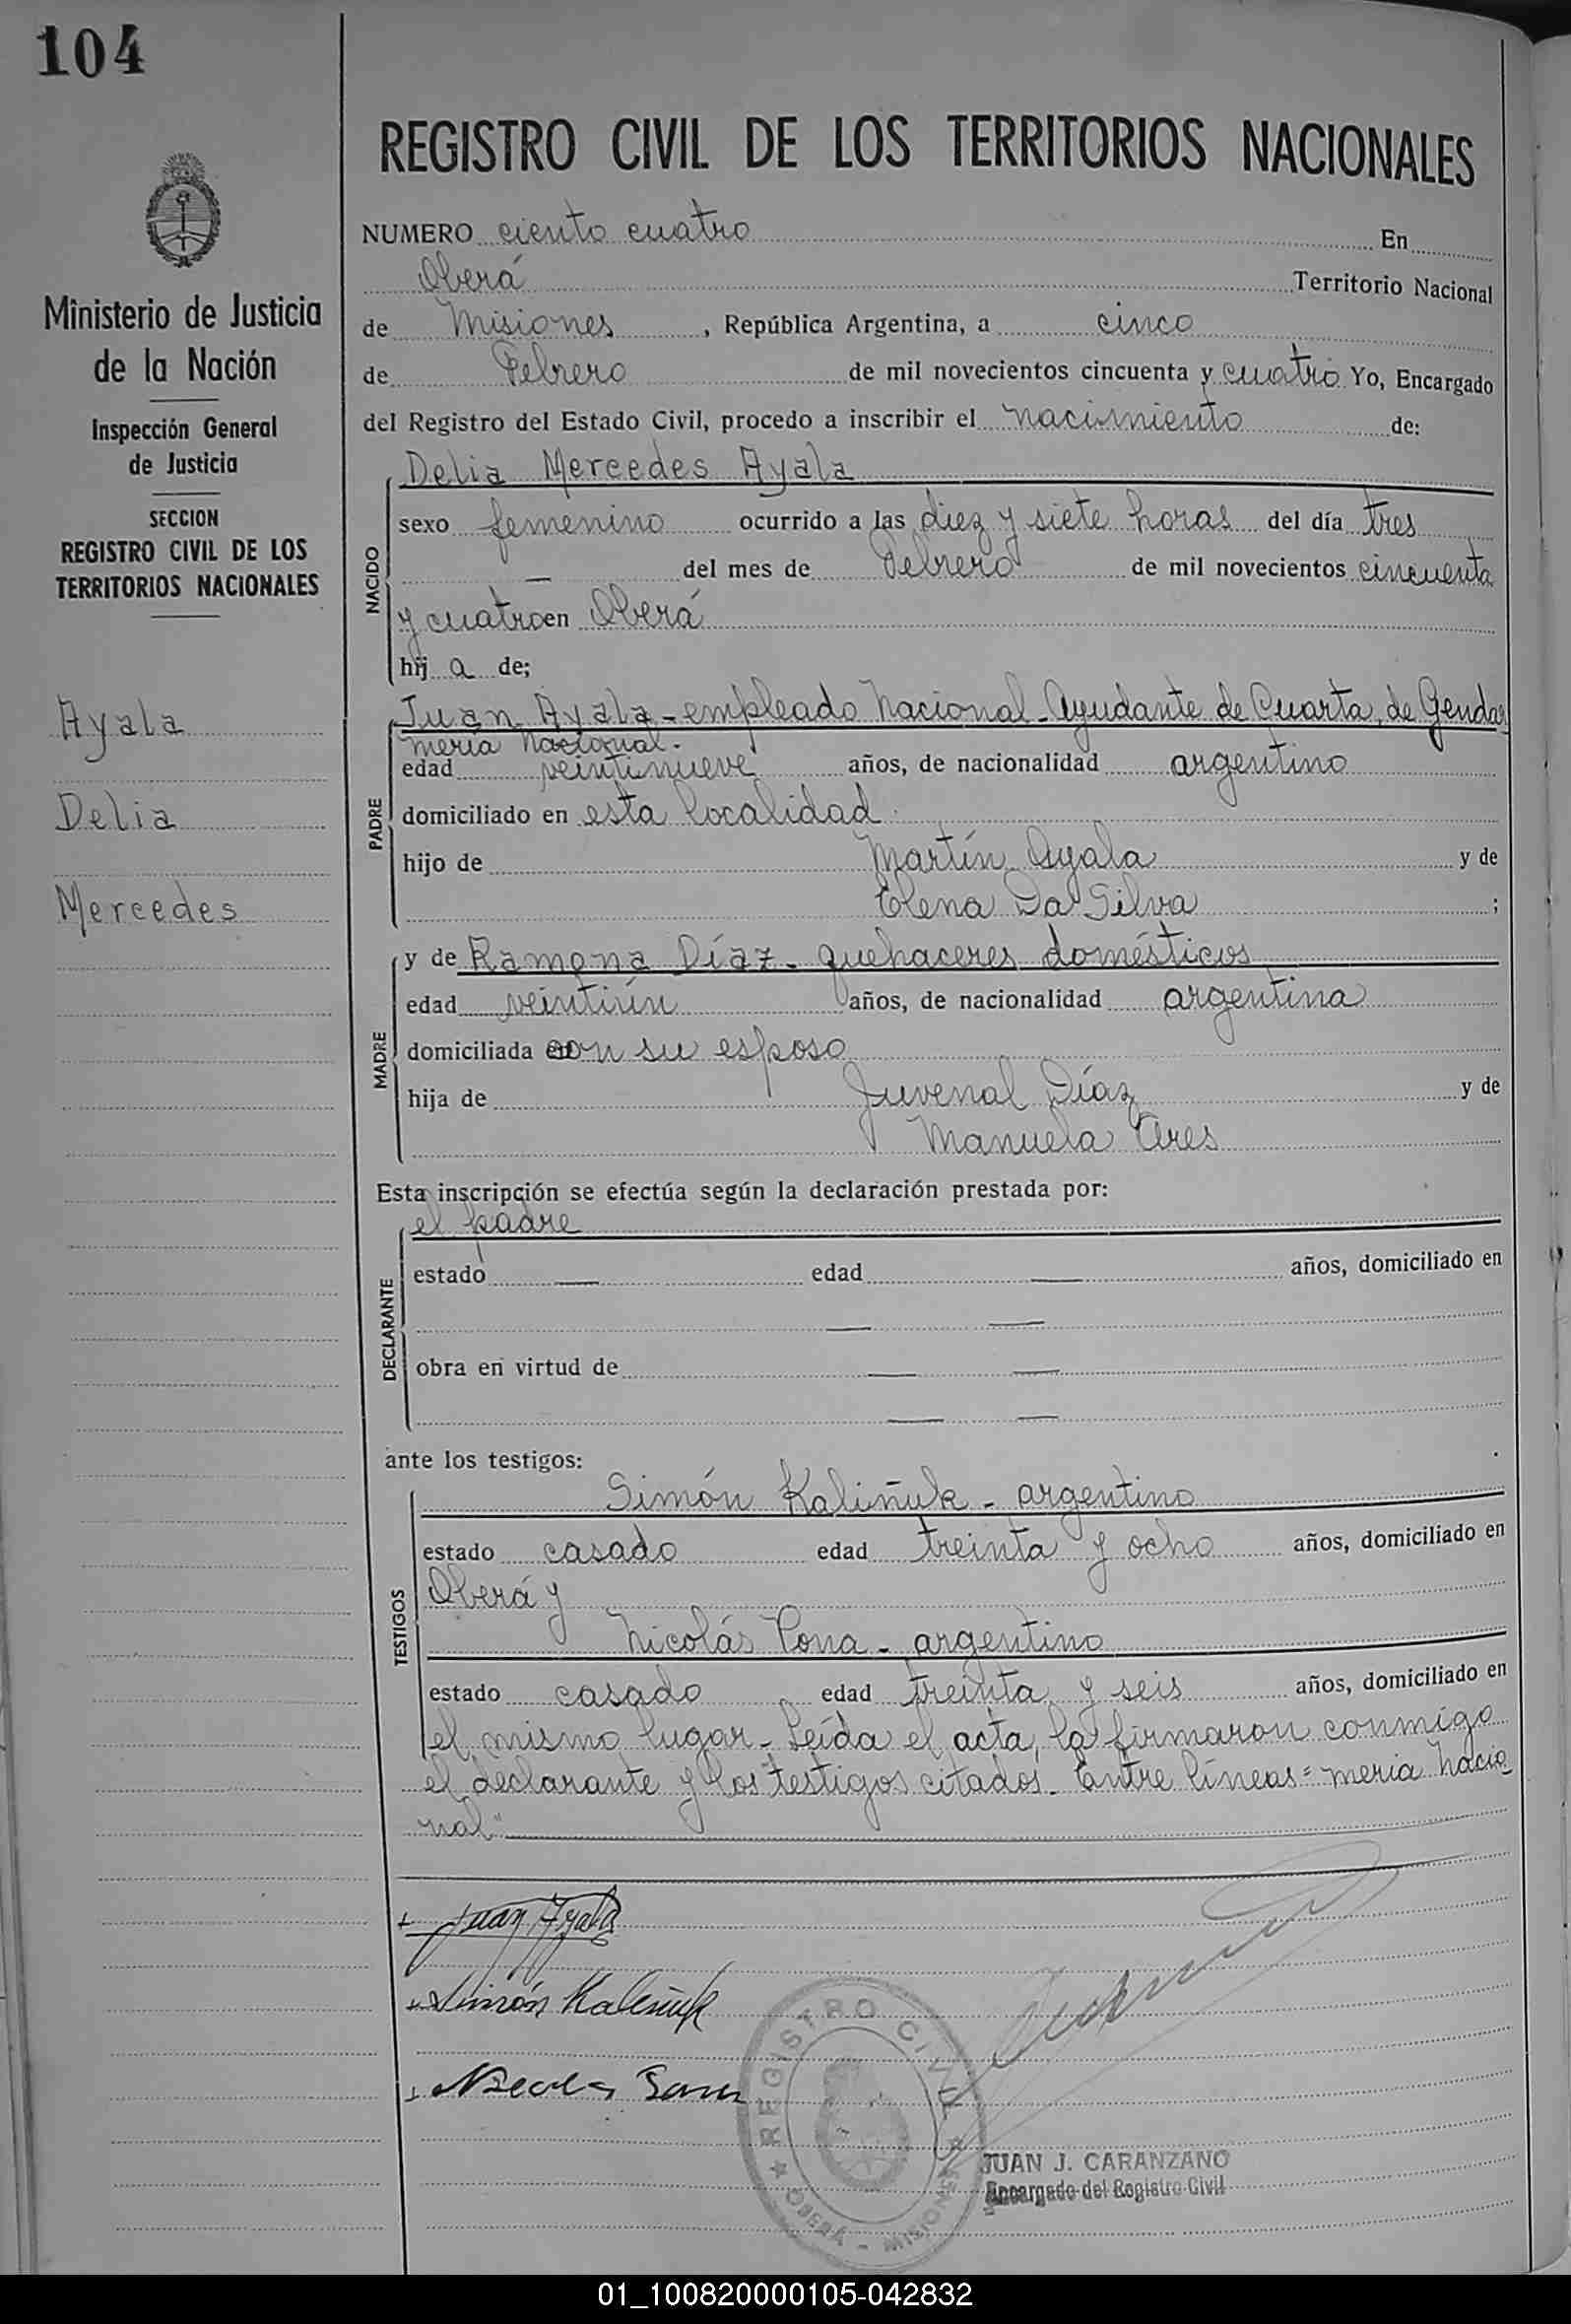 104
REGISTRO CIVIL DE LOS TERRITORIOS NACIONALES
Ministerio de Justicia
de la Nación
Inspección General
de Justicia
SECCION
REGISTRO CIVIL DE LOS
TERRITORIOS NACIONALES
Ayala
Delia
Mercedes
NUMERO ciento cuatro En
Oberá Territorio Nacional
de Misiones, República Argentina, a cinco
de Febrero de mil novecientos cincuenta y cuatro Yo, Encargado
del Registro del Estado Civil, procedo a inscribir el nacimiento de:
NACIDO
Delia Mercedes Ayala
sexo femenino ocurrido a las diez y siete horas del día tres
— del mes de Febrero de mil novecientos cincuenta
y cuatro en Oberá
hija de;
PADRE
Juan Ayala - empleado Nacional - Ayudante de Cuarta, de Gendar
meria Nacional.-
edad veintinueve años, de nacionalidad argentino
domiciliado en esta localidad
hijo de Martín Ayala y de
Elena Da Silva ;
MADRE
y de Ramona Díaz - quehaceres domésticos
edad veintiún años, de nacionalidad argentina
domiciliada con su esposo
hija de Juvenal Díaz y de
Manuela Ares
Esta inscripción se efectúa según la declaración prestada por:
DECLARANTE
el padre
estado — edad — años, domiciliado en
— —
obra en virtud de — —
— —
ante los testigos:
TESTIGOS
Simón Kaliñuk - argentino
estado casado edad treinta y ocho años, domiciliado en
Oberá y
Nicolás - argentino
estado casado edad treinta y seis años, domiciliado en
el mismo lugar - Leída el acta, la firmaron conmigo
el declarante y los testigos citados - Entre líneas = meria Nacio
nal"
Juan Ayala
Simón Kaliñuk
Nicolas
REGISTRO CIVIL
OBERÁ - MISIONES
JUAN J. CARANZANO
Encargado del Registro Civil
01_100820000105-042832